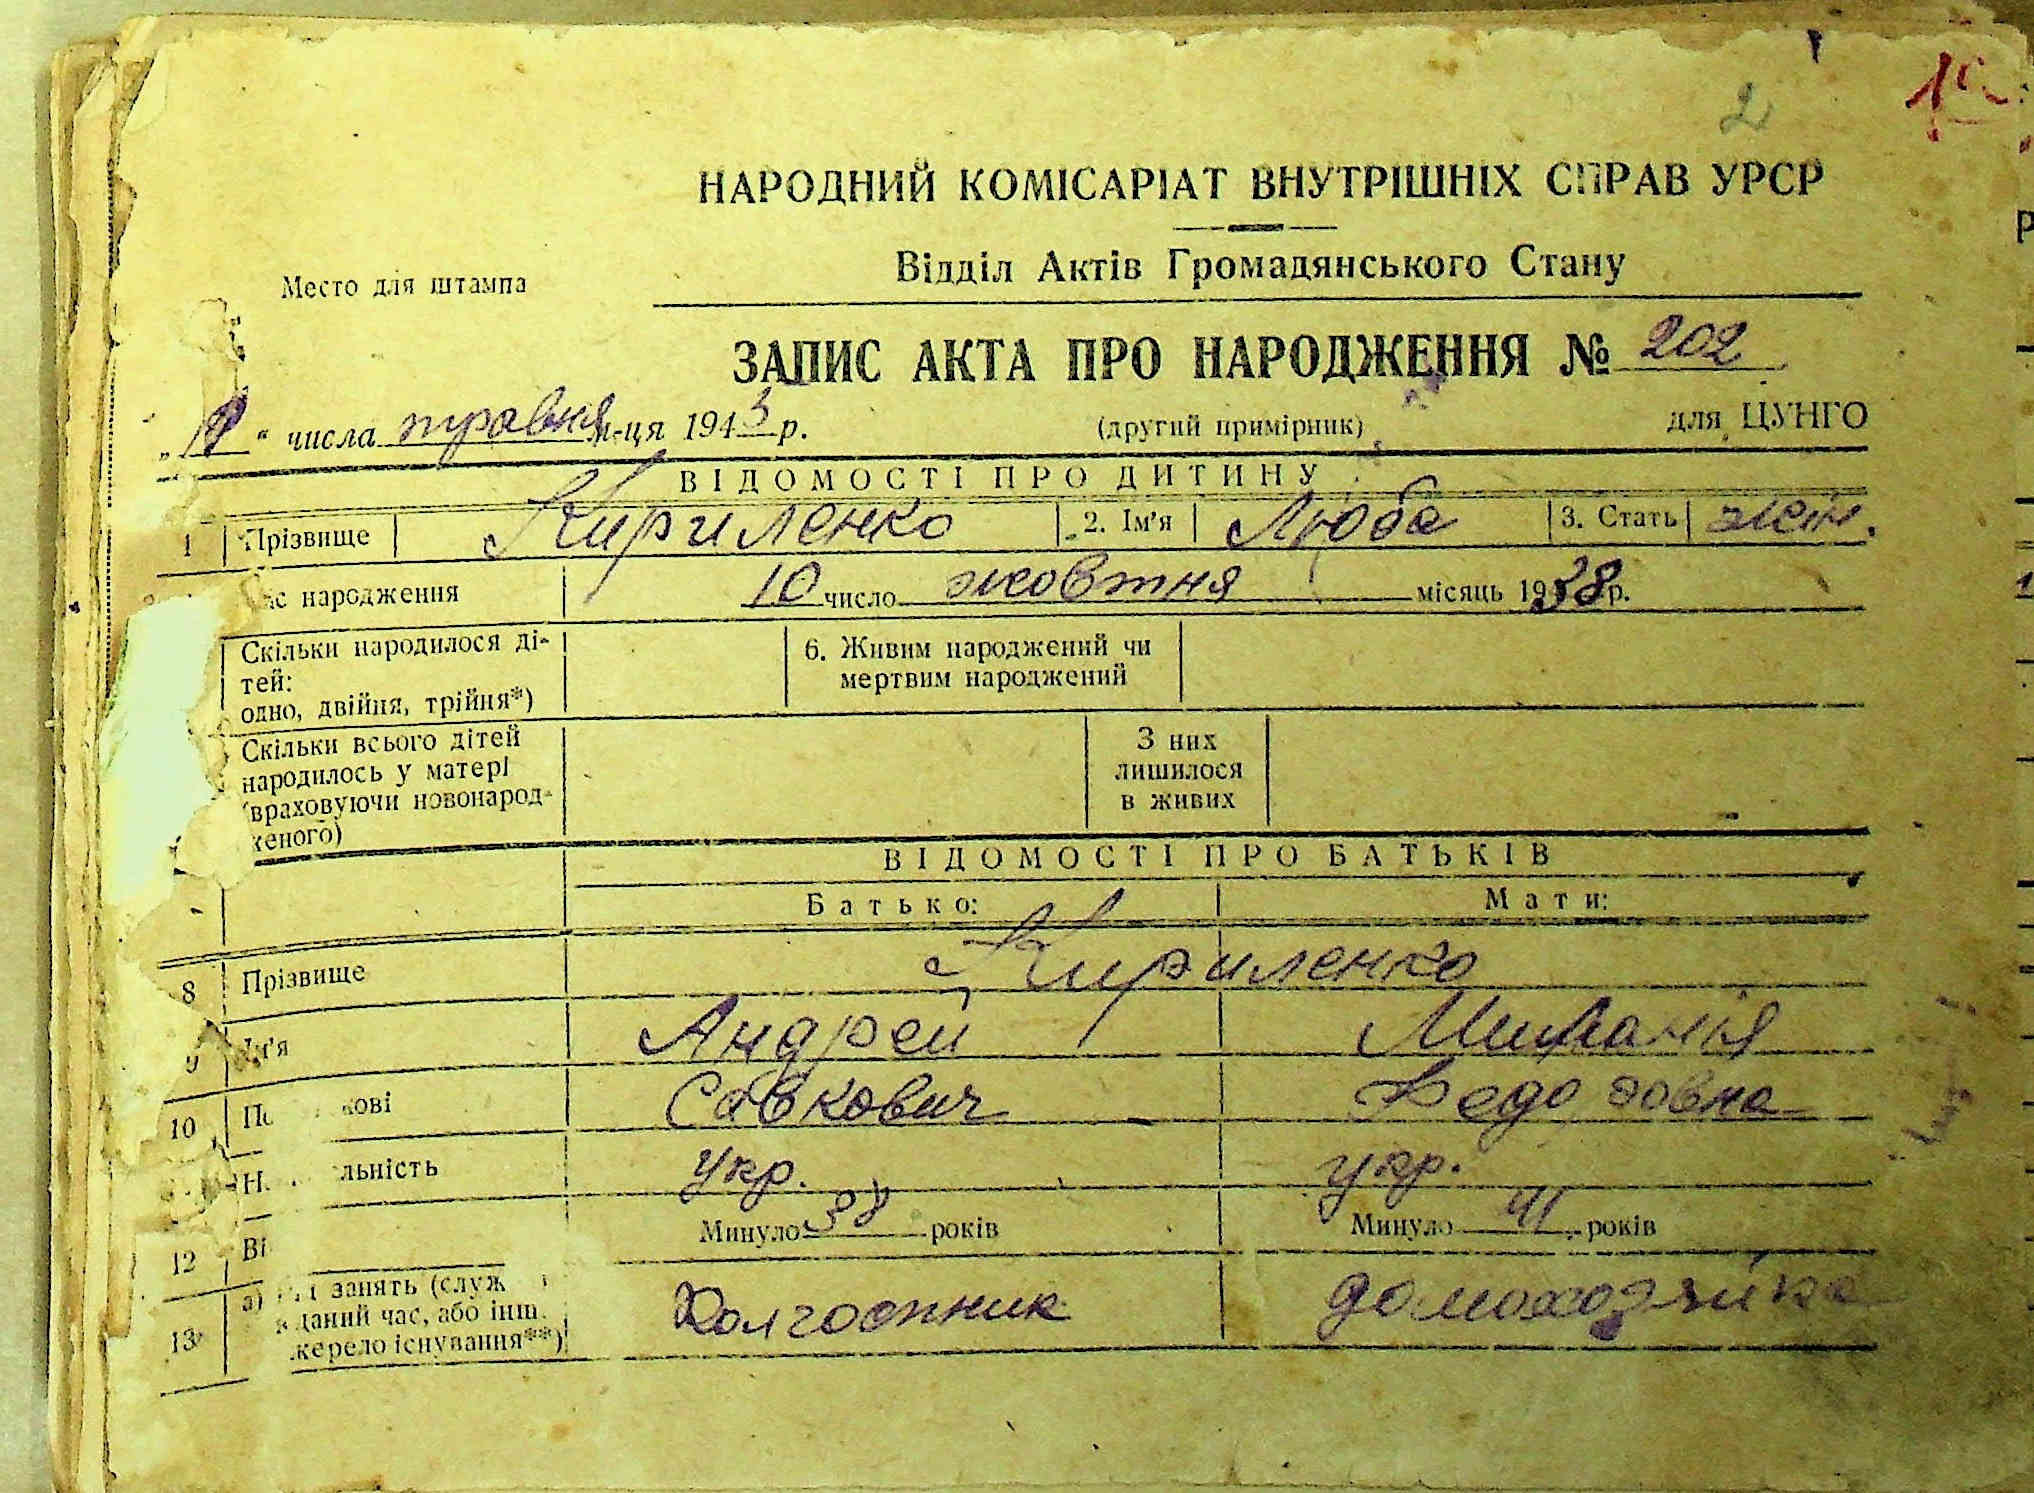 2
НАРОДНИЙ КОМІСАРІАТ ВНУТРІШНІХ СПРАВ УРСР
Відділ Актів Громадянського Стану
Место для штампа
ЗАПИС АКТА ПРО НАРОДЖЕННЯ № 202
числа травня м-ця 1945 р. (другий примірник) для ЦУНГО
ВІДОМОСТІ ПРО ДИТИНУ
1 Прізвище Кириленко 2. Ім'я Люба 3. Стать жін.
ас народження 10 число жовтня місяць 1938 р.
Скільки народилося ді-
тей:
одно, двійня, трійня*)
6. Живим народжений чи
мертвим народжений
Скільки всього дітей
народилось у матері
(враховуючи новонарод-
женого)
З них
лишилося
в живих
ВІДОМОСТІ ПРО БАТЬКІВ
Батько: Мати:
8 Прізвище Кириленко
9 Ім'я Андрей
10 По кові Савкович Федоровна
Н льність укр. укр.
12 Ві Минуло 38 років Минуло 41 років
13 а) занять (служ
даний час, або інш.
жерело існування**)
Колгоспник домохозяйка